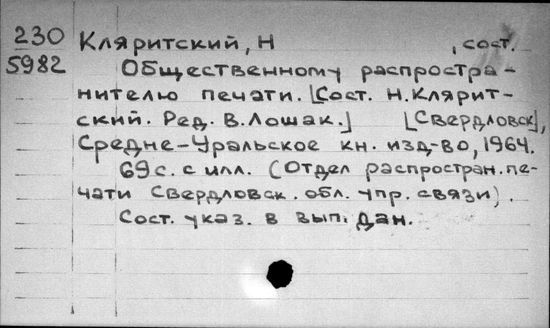 230
5982
Кляритский, Н , сост.
Общественному распростра-
нителю печати. [Сост. Н. Клярит-
ский. Ред. В. Лошак.] [Свердловск],
Средне-Уральское кн. изд-во, 1964.
69 с. с илл. (Отдел распростран. пе-
чати Свердловск. обл. упр. связи).
Сост. указ. в вып. дан.